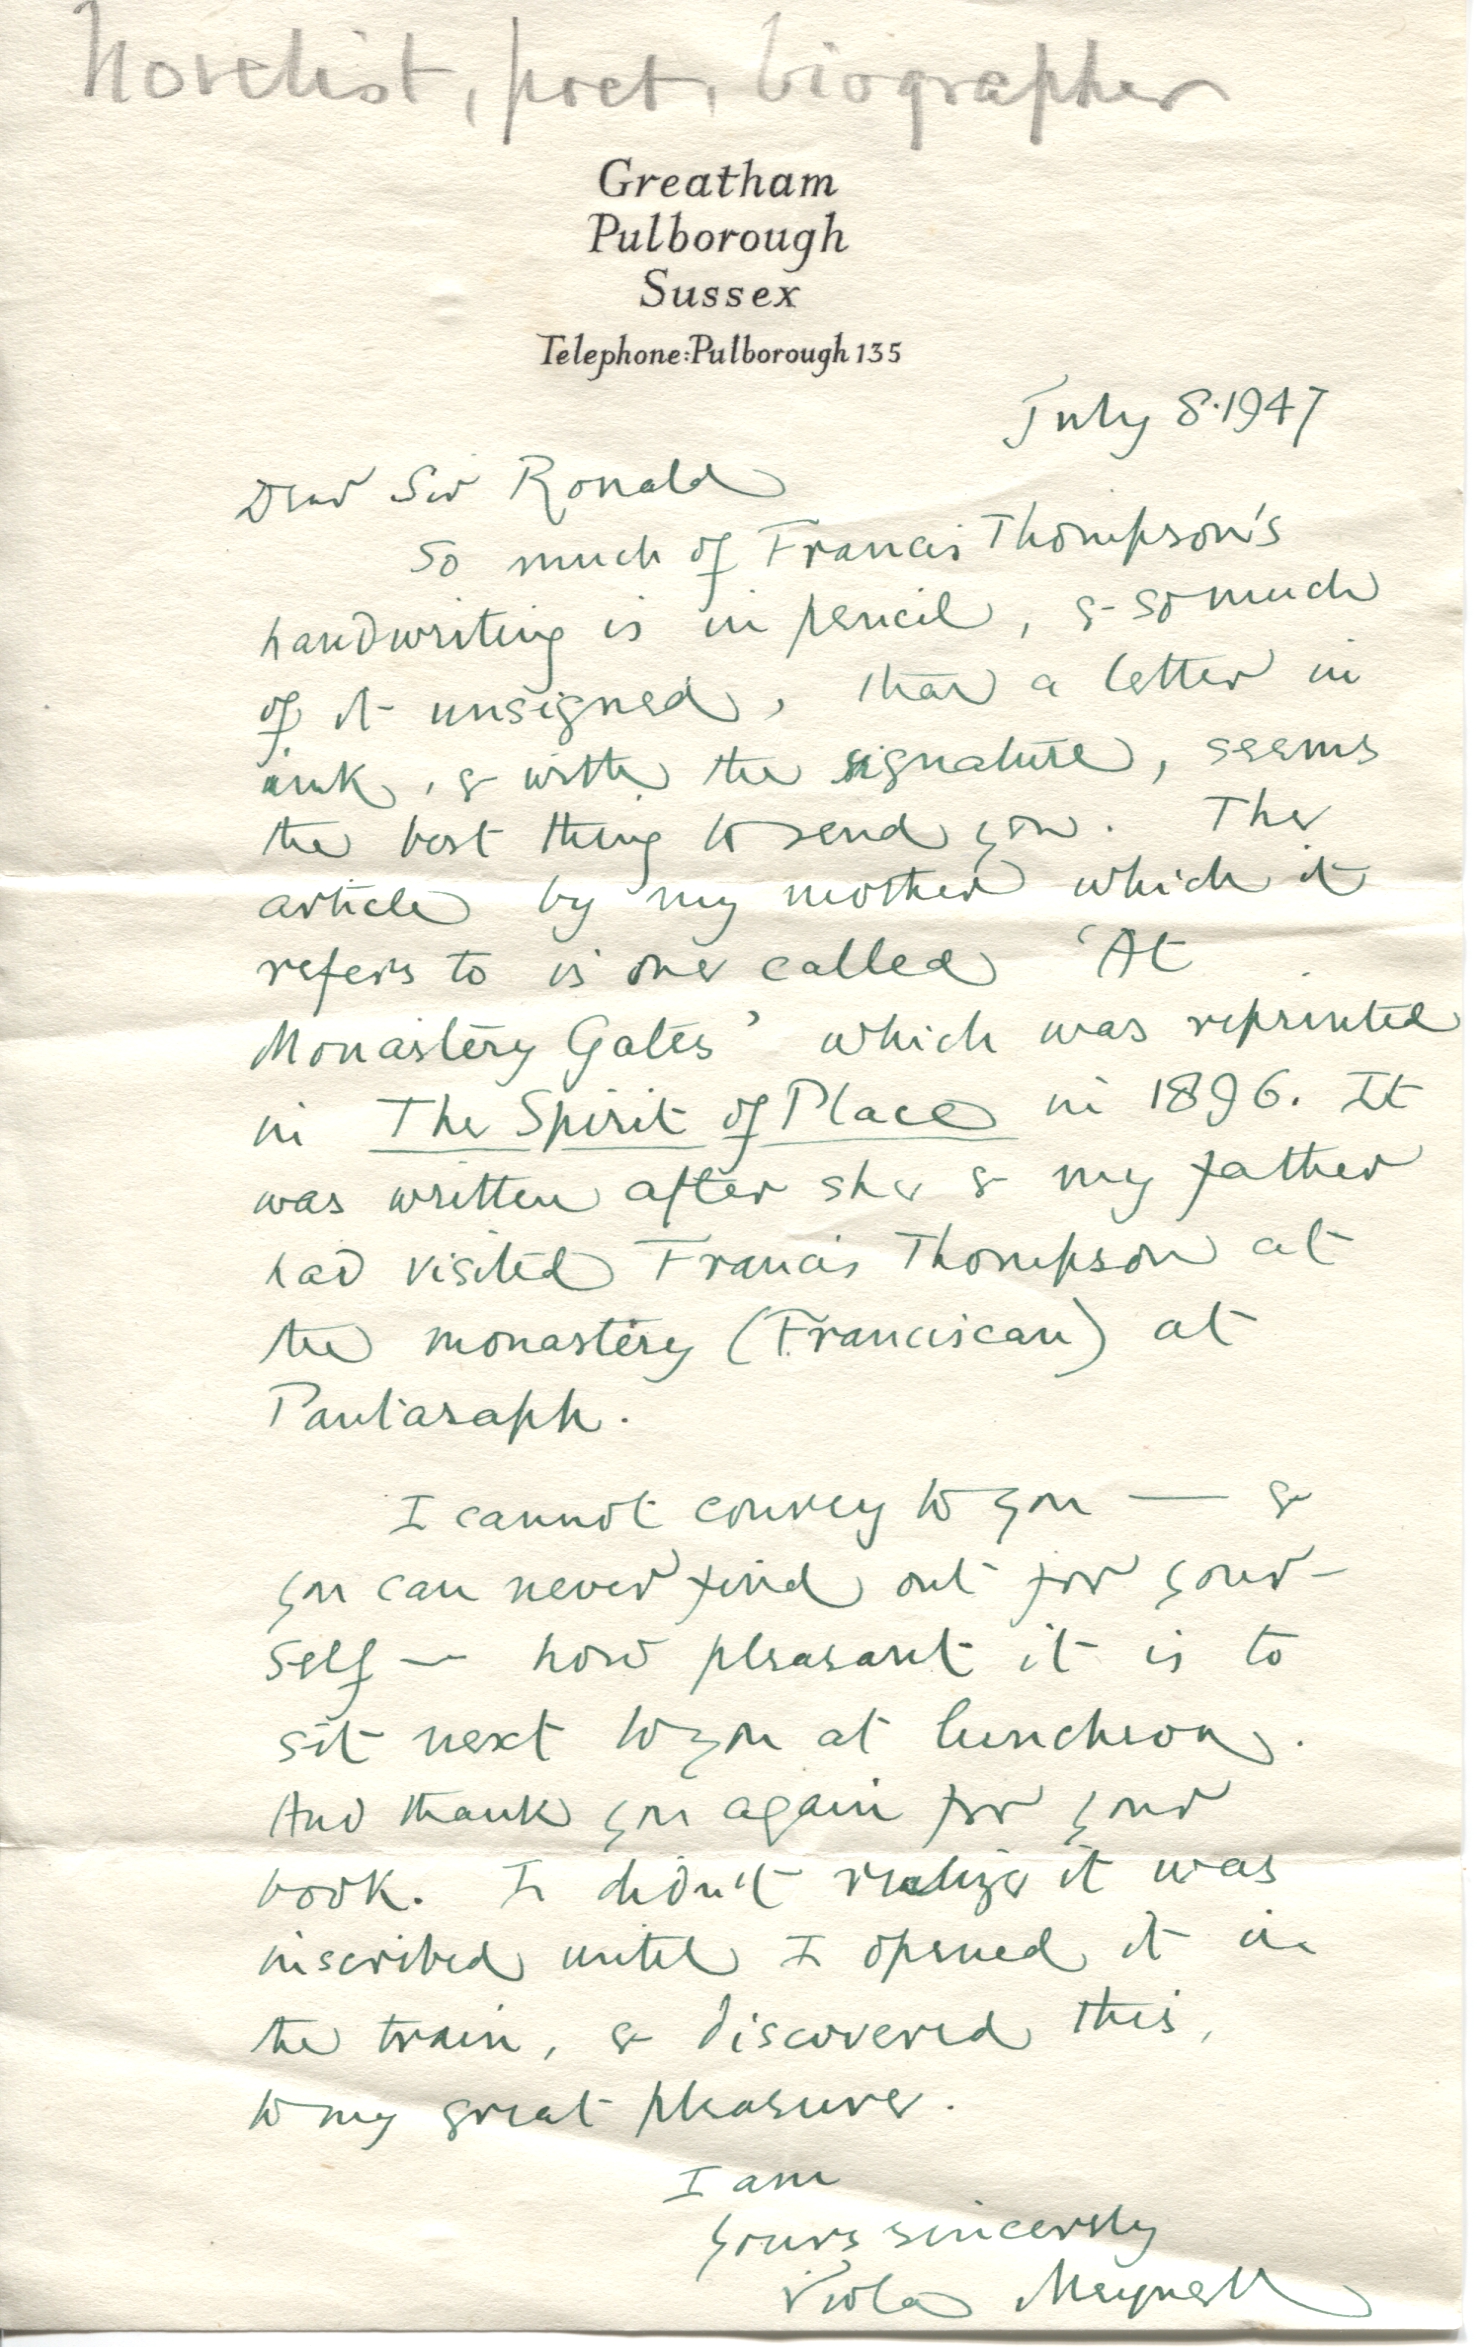 Novelist, poet, biographer
Greatham
Pulborough
Sussex
Telephone: Pulborough 135
July 8. 1947
Dear Sir Ronald
So much of Francis Thompson's
handwriting is in pencil, & so much
of it unsigned, that a letter in
ink, & with the signature, seems
the best thing to send you. The
article by my mother which it
refers to is one called 'At
Monastery Gates' which was reprinted
in The Spirit of Place in 1896. It
was written after she & my father
had visited Francis Thompson at
the monastery (Franciscan) at
Pantasaph.
I cannot convey to you — &
you can never find out for your-
self — how pleasant it is to
sit next to you at luncheon.
And thank you again for your
book. I didn't realize it was
inscribed until I opened it in
the train, & discovered this,
to my great pleasure.
I am
yours sincerely
Viola Meynell